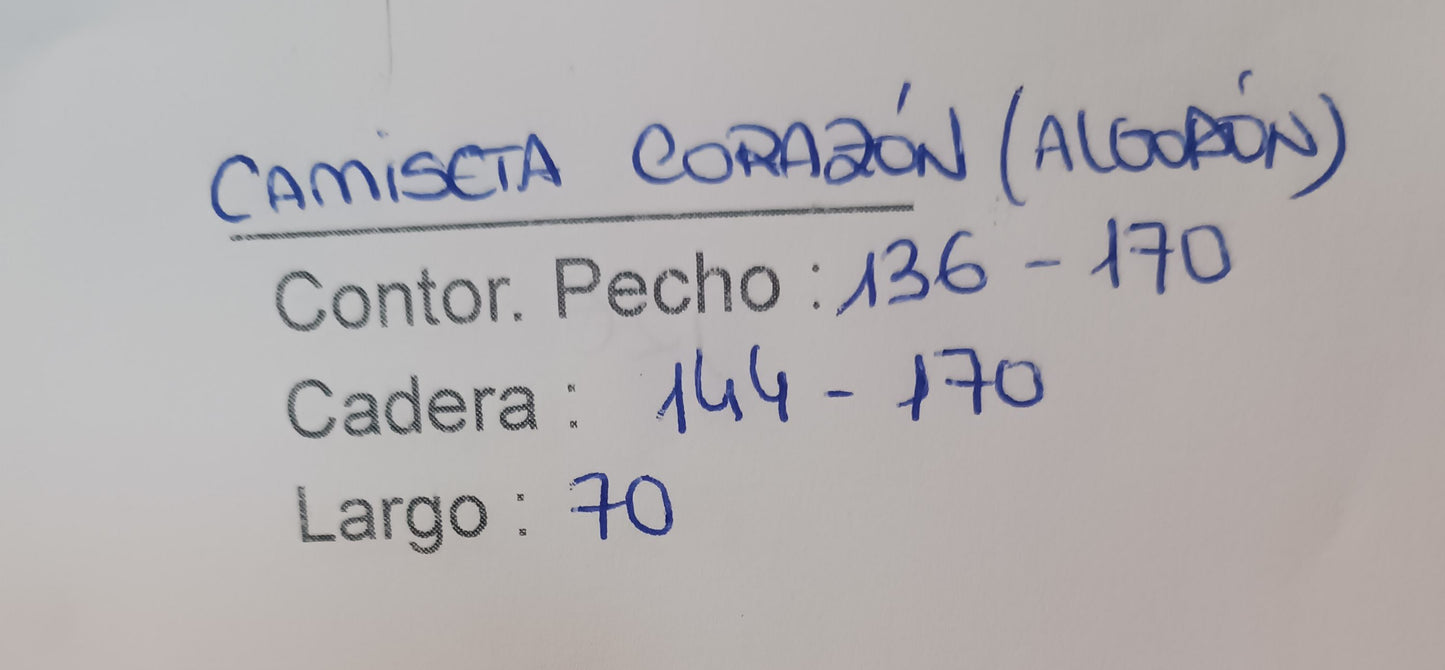 CAMISETA CORAZÓN (ALGODÓN)
Contor. Pecho : 136 - 170
Cadera : 144 - 170
Largo : 70